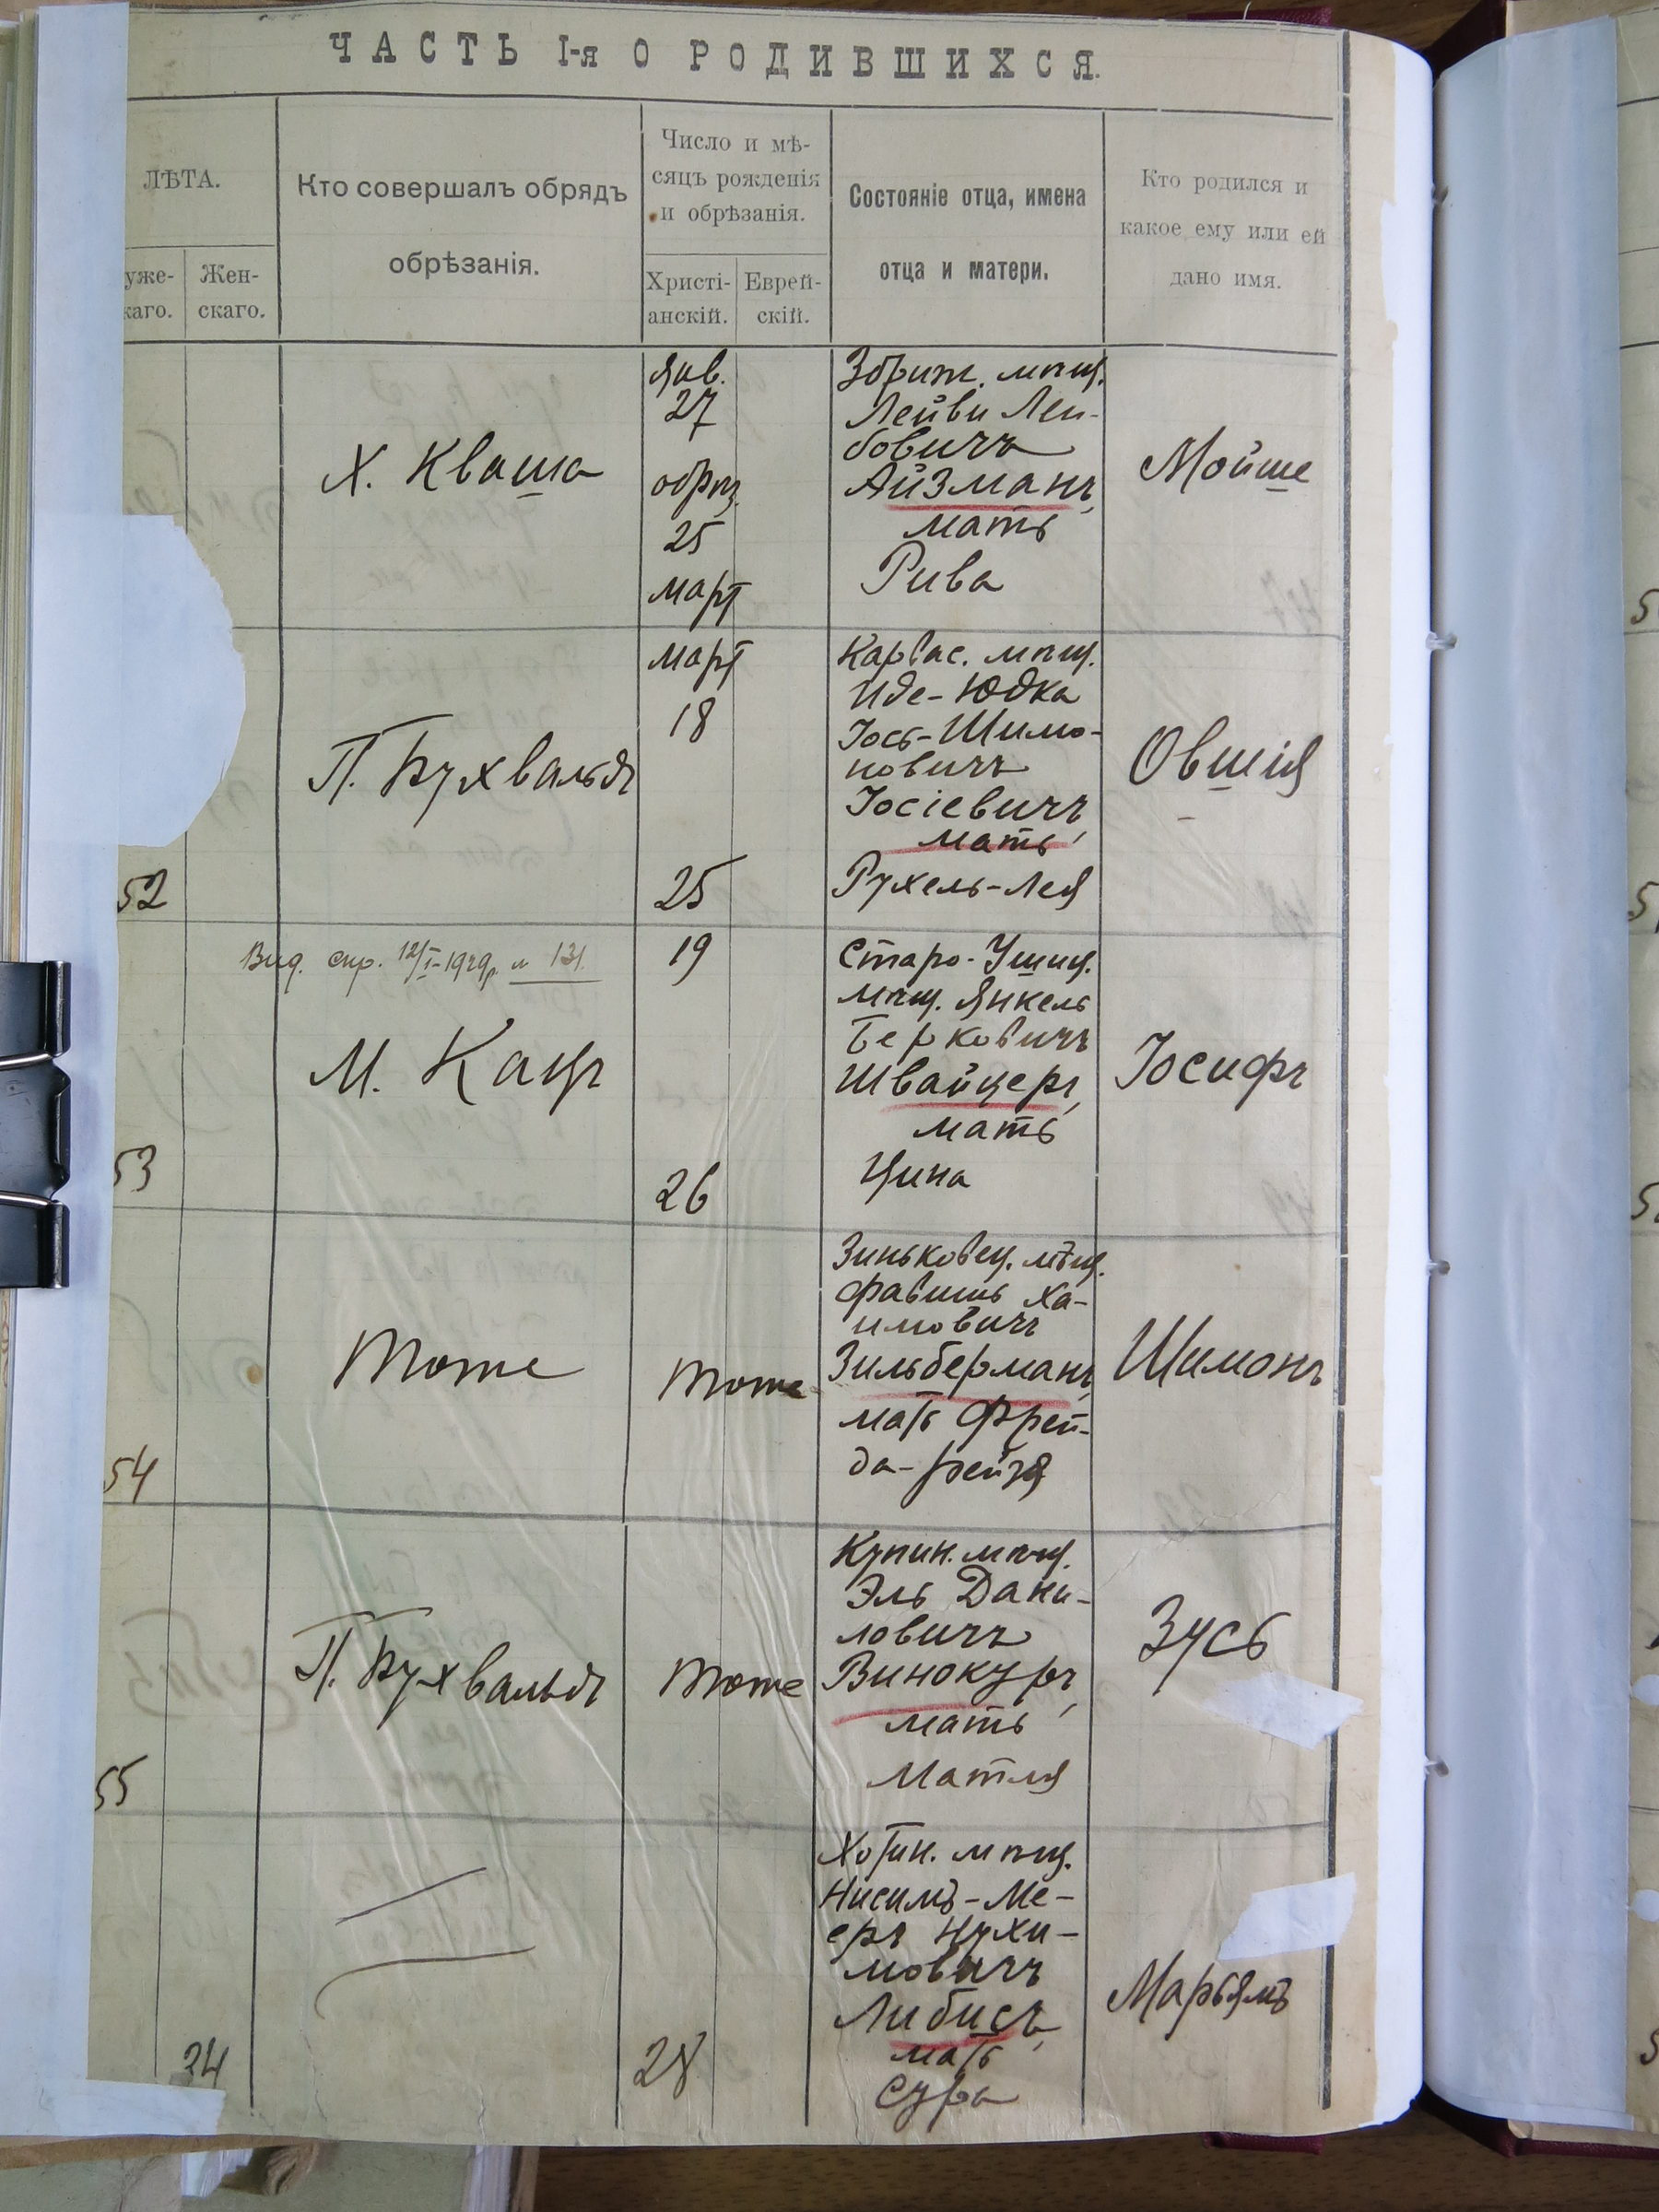 ЧАСТЬ I-я О РОДИВШИХСЯ.
ЛѢТА.
уже-
каго.
Жен-
скаго.
Кто совершалъ обрядъ
обрѣзанія.
Число и мѣ-
сяцъ рожденія
и обрѣзанія.
Христі-
анскій.
Еврей-
скій.
Состояніе отца, имена
отца и матери.
Кто родился и
какое ему или ей
дано имя.
Х. Кваша
Янв.
27
обрѣз.
25
март
Збриж. мѣщ.
Лейви Лей-
бовичъ
Айзманъ,
мать
Рива
Мойше
52
П. Бухвальдъ
март
18
25
Карвас. мѣщ.
Иде-Юдка
Іось-Шимо-
новичъ
Іосіевичъ,
мать
Рухель-Лея
Овшія
53
Выд. спр. 12/I-1929 г. № 131.
М. Кацъ
19
26
Старо-Ушиц.
мѣщ. Янкель
Берковичъ
Швайцеръ,
мать
Ципа
Іосифъ
54
тоже
тоже
Зиньковец. мѣщ.
Фавишь Ха-
имовичъ
Зильберманъ,
мать Фрей-
да-Рейзя
Шимонъ
55
П. Бухвальдъ
тоже
Купин. мѣщ.
Эль Дани-
ловичъ
Винокуръ,
мать
Матля
Зусь
34
28
Хотин. мѣщ.
Нисимъ-Ме-
еръ Нухи-
мовичъ
Либисъ,
мать
Сура
Марьямъ